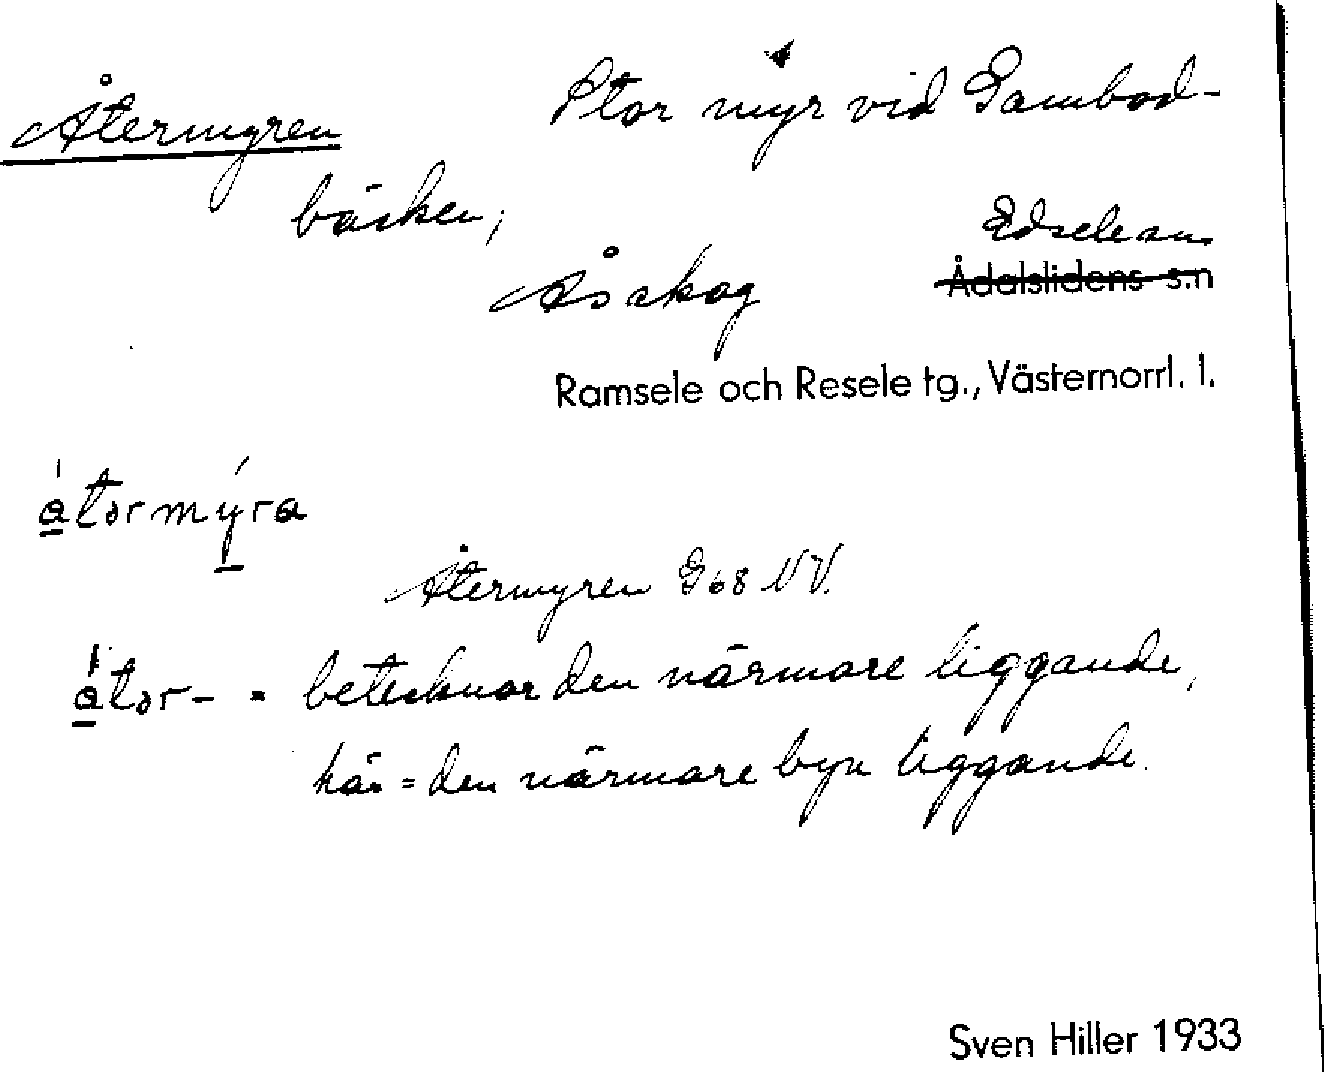 Återmyren Stor myr vid Gambod-
bäcken,
Edsele sn.
Åskog Ådalslidens s:n
Ramsele och Resele tg., Västernorrl. l.
åtərmýra
Återmyren G68 NV.
åtər- = betecknar den närmare liggande,
här = den närmare byn liggande.
Sven Hiller 1933